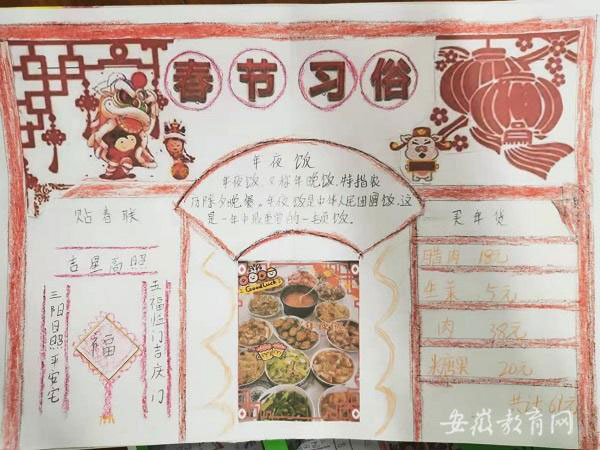 春节习俗
年夜饭
年夜饭,又称年晚饭.特指农
历除夕晚餐。年夜饭是中华人民团圆饭.这
是一年中最重要的一顿饭.
贴春联
吉星高照
三阳日照平安宅
福
五福临门吉庆门
GoodLuck
买年货
腊肉 18元
生菜 5元
肉 38元
糖果 20元
共计 元
安徽教育网